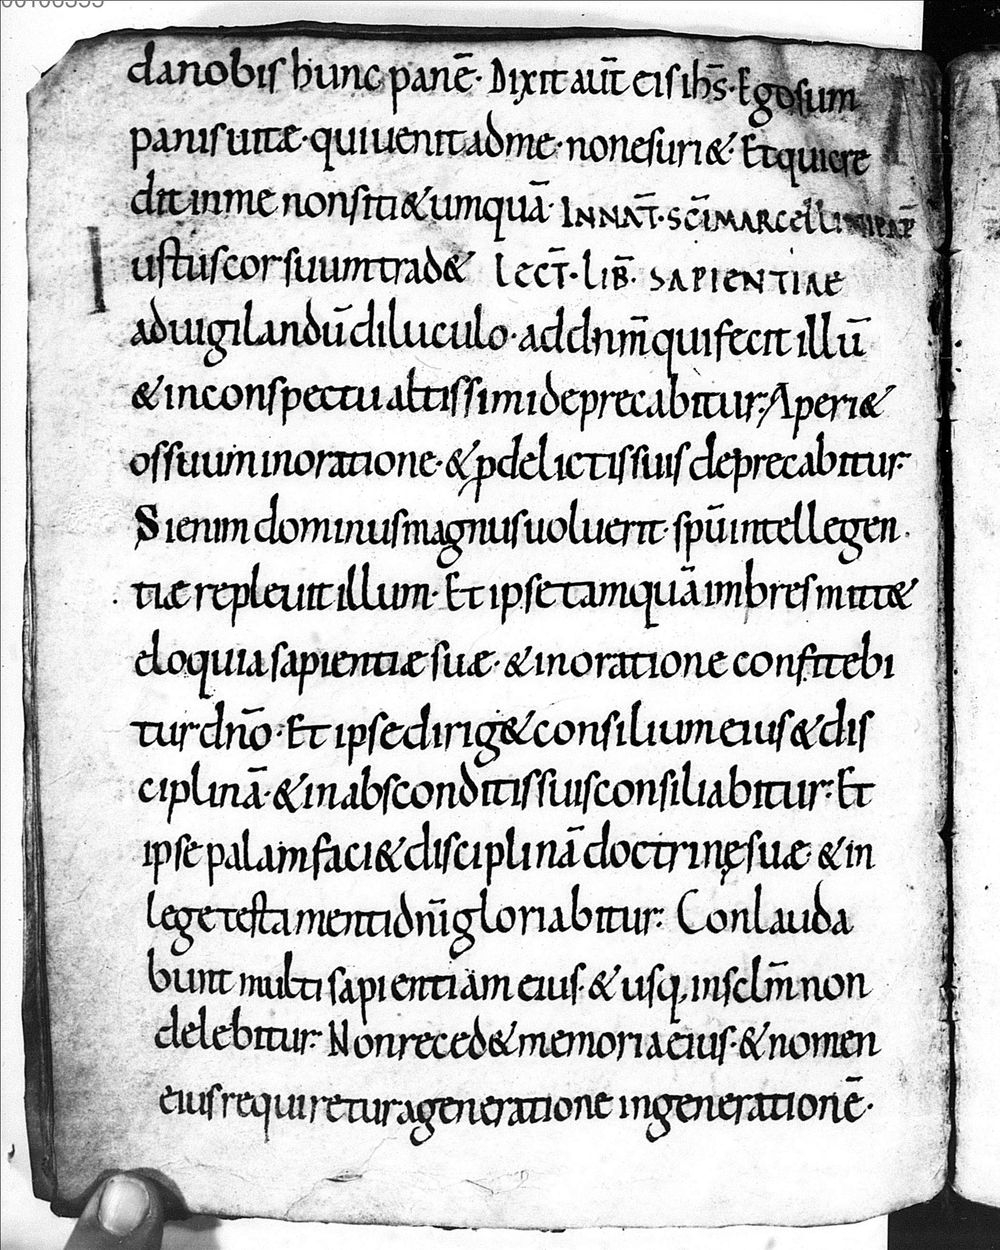 da nobis hunc panē· Dixit aūt eis ih̄s· Ego sum
panis uitæ· qui uenit ad me· non esuri& Et qui cre
dit in me non siti& umquā· IN NAT̄· SC̄I MARCELLI
Iustus cor suum trad& LECT̄· LIB̄· SAPIENTIAE
ad uigilandū diluculo· ad dn̄m qui fecit illū
& in conspectu altissimi deprecabitur; Aperi&
os suum in oratione· & p delictis suis deprecabitur·
Si enim dominus magnus uoluerit· spū intellegen
tiæ repleuit illum· Et ipse tamquā imbres mitt&
eloquia sapientiæ suæ· & in oratione confitebi
tur dn̄o· Et ipse dirig& consilium eius & dis
ciplinā· & in absconditis suis consiliabitur· Et
ipse palam faci& disciplinā doctrinę suæ· & in
lege testamenti dn̄i gloriabitur· Conlauda
bunt multi sapientiam eius· & usq, in sclm̄ non
delebitur· Non reced& memoria eius· & nomen
eius requiretur a generatione in generationē·